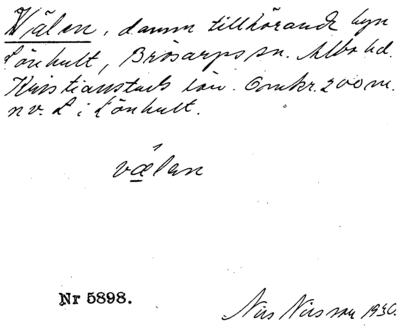 Välen, damm tillhörande byn
Lönhult, Brösarps sn. Albo hd.
Kristianstads län. Omkr. 200 m.
n v. L i Lönhult.
vælen
Nr 5898.
Nils Nilsson 1930.